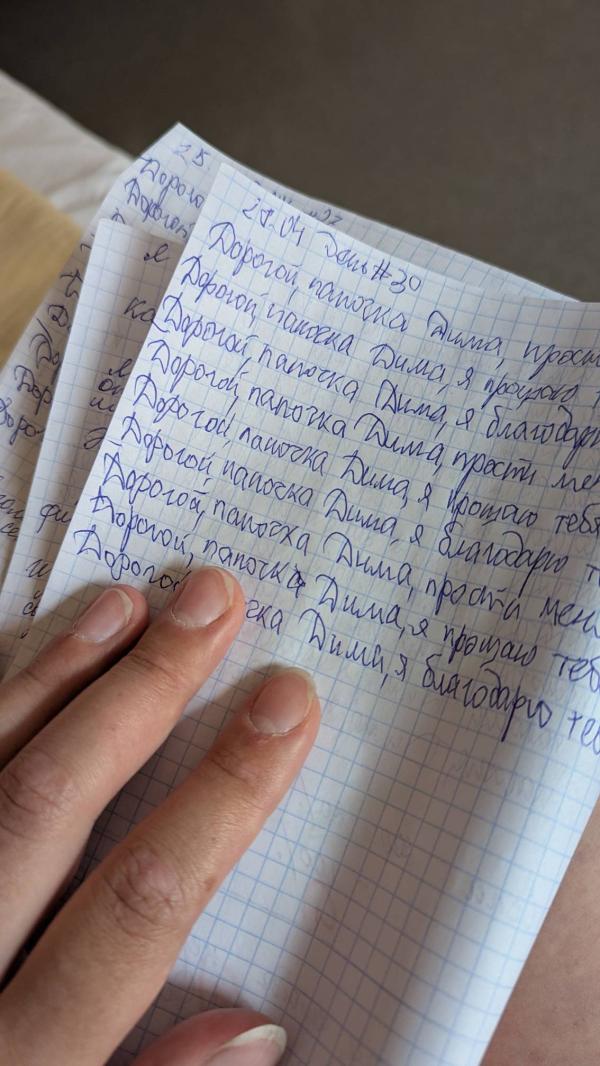 25.
Дорого
Дорогой
я
ка
Дор
Доро
27.04 День #30
Дорогой, папочка Дима, прост
Дорогой, папочка Дима, я прощаю т
Дорогой, папочка Дима, я благодарю
Дорогой, папочка Дима, прости мен
Дорогой, папочка Дима, я прощаю тебя
Дорогой, папочка Дима, я благодарю т
Дорогой, папочка Дима, прости мен
Дорогой, папочка Дима, я прощаю теб
Дорогой чка Дима, я благодарю теб